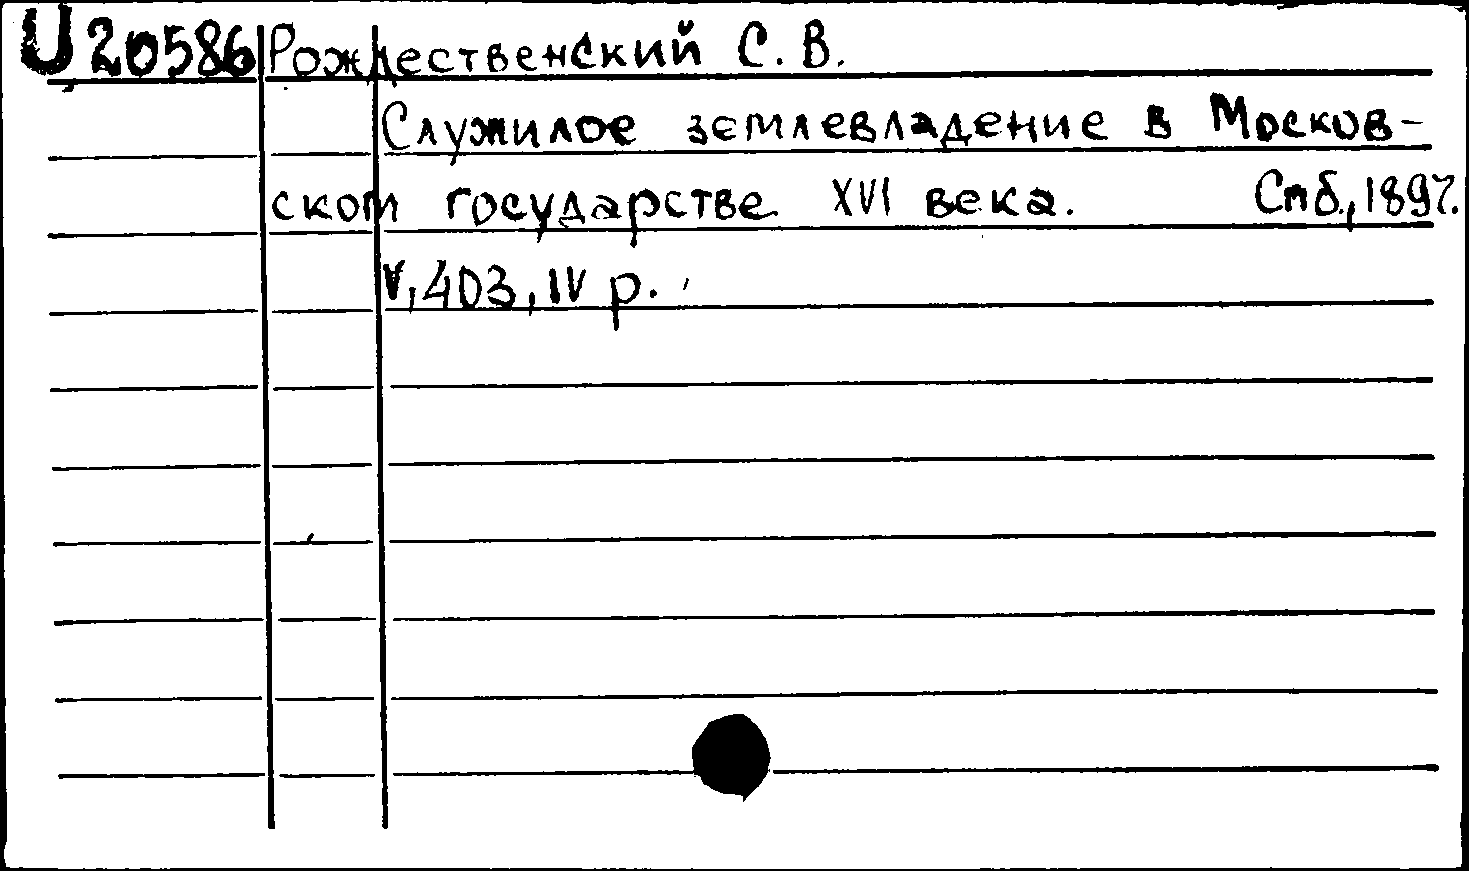 U 20586 Рождественский С. В.
Служилое землевладение в Москов-
ском государстве XVI века. Спб., 1897.
V, 403, IV p.